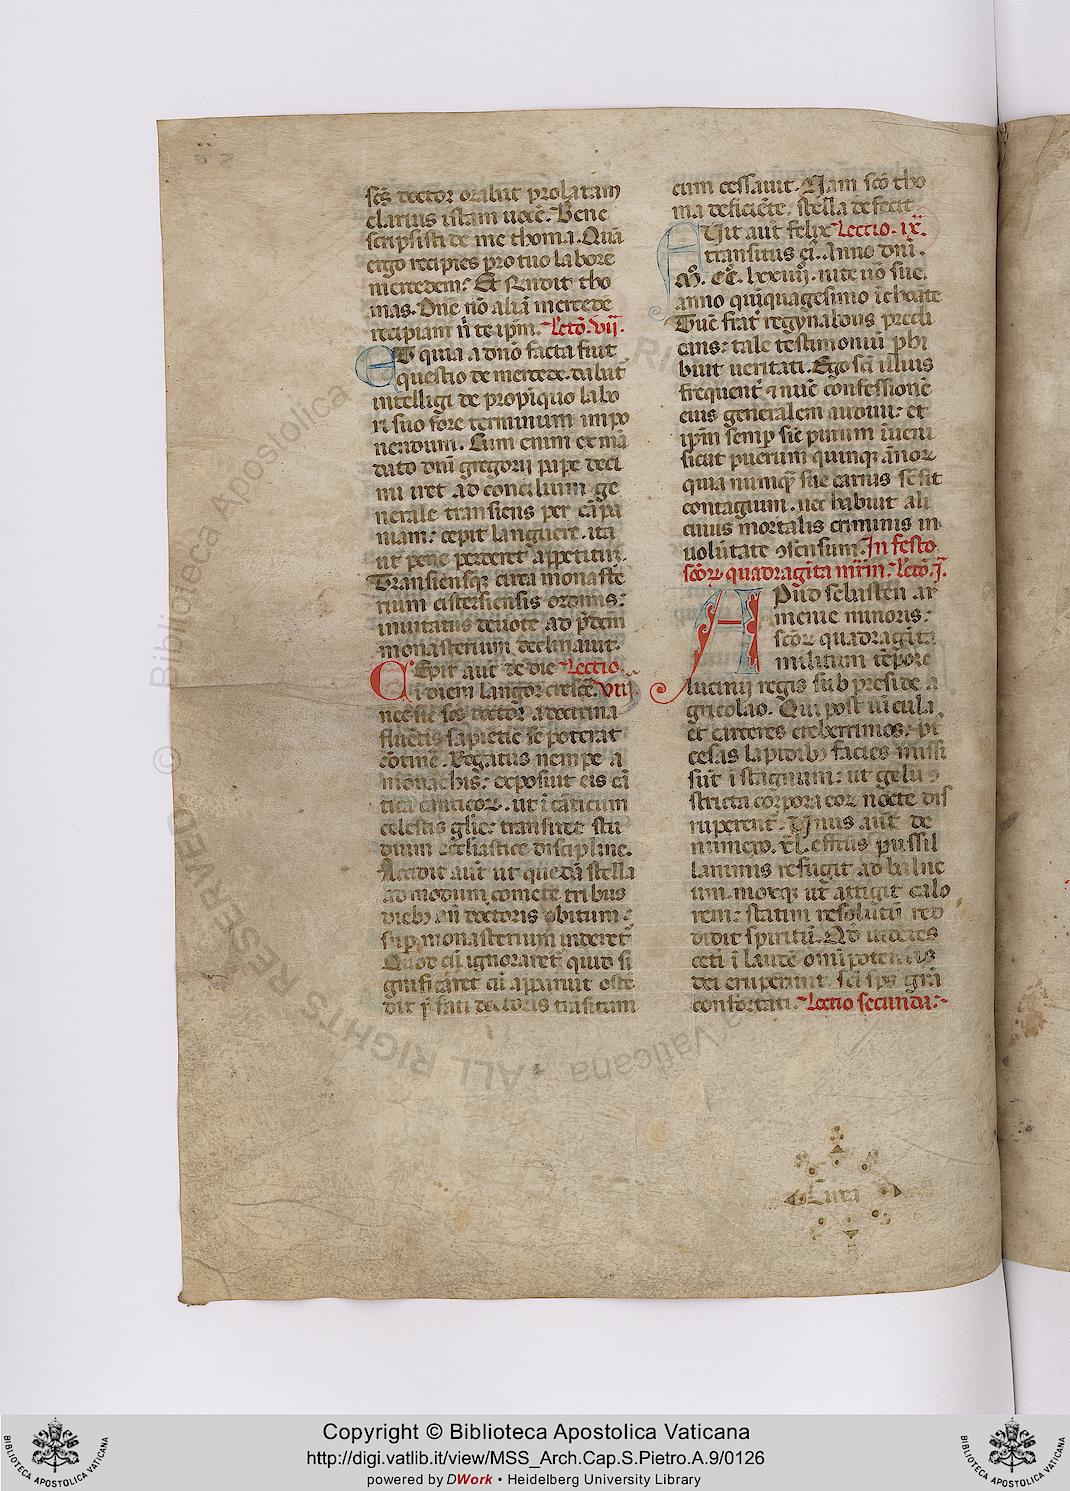 scūs doctor orabat prolatam
clarius istam uocē. Bene
scripsisti de me thoma. Quā
ergo recipies pro tuo labore
mercedem? Et rn̄dit tho
mas. Dn̄e nō aliā mercedē
recipiam n̄ te ip̄m. Lectō. vii.
ET quia a dn̄o facta fuit
questio de mercede. dabat᷑
intelligi de propīquo labo
ri suo fore terminum impo
nendum. Cum enim ex mā
dato dn̄i gregorii pape deci
mi iret ad concilium ge
nerale transiens per cāpa
niam: cepit languere. ita
ut pene perderet appetitū.
Transiensq; circa monaste
rium cisterciensis ordinis:
inuitatus deuote ad p̄dcm̄
monasterium declinauit.
CEpit aut̄ de die Lectio
ī diem langor cresce᷑. viii.
nec sic scūs doctor a doctrina
fluētis sapietie se poterat
cōtine᷑. Rogatus nempe a
monachis: exposuit eis cā
tica canticoꝝ. ut ī cāticum
celestis gl̄ie: transiret stu
dium eccl̄iastice discipline.
Accidit aut̄ ut quedā stella
ad modum comete tribus
dieb; an̄ doctoris obitum:
sup̱ monasterium uideret᷑
Quod cū ignoraret᷑ quid si
gnificaret cū apparuit ostē
dit p̱ fati doctoris trāsitum
cum cessauit. Nam scō tho
ma deficiēte. stella defecit.
AUit aut̄ felix Lectio. ix.
transitus eī. Anno dn̄i.
M̊. CC̊. lxxiiii. uite ůo sue.
anno quīquagesimo īchoāte
Tūc frat᷑ regynaldus predi
cans: tale testimoniū p̱hi
buit ueritati. Ego scī illius
frequent᷑ ⁊ nūc confessionē
eius generalem audiui: et
ip̄m semp̱ sic purum īueni
sicut puerum quinq; ānoꝝ
quia numq̄ sue carnis sēsit
contagium. nec habuit ali
cuius mortalis criminis in
uolūtate ꝯsensum. In festo
scōꝝ quadragīta mr̄m. Lectō. j.
APud sebasten ar
menie minoris:
scōꝝ quadragīta
militum tēpore
lucinii regis sub preside a
gricolao. Qui post uīcula
et carceres creberrimos: p̱
cesas lapidib; facies missi
sūt ī stagnum: ut gelu ꝯ
stricta corpora eoꝝ nocte dis
ruperent᷑. Unus aut̄ de
numero. xl. effctus pussil
lanimis refugit ad balne
um. moxq; ut attigit calo
rem: statim resolutū red
didit spiritū. Ad uideres
ceti ī laudē om̄ipotentis
dei eruperunt. sc̄i sp̄s gr̄a
confortati. Lectio secunda.
Copyright © Biblioteca Apostolica Vaticana
http://digi.vatlib.it/view/MSS_Arch.Cap.S.Pietro.A.9/0126
powered by DWork • Heidelberg University Library
BIBLIOTECA APOSTOLICA VATICANA
BIBLIOTECA APOSTOLICA VATICANA
© Biblioteca Apostolica Vaticana · ALL RIGHTS RESERVED